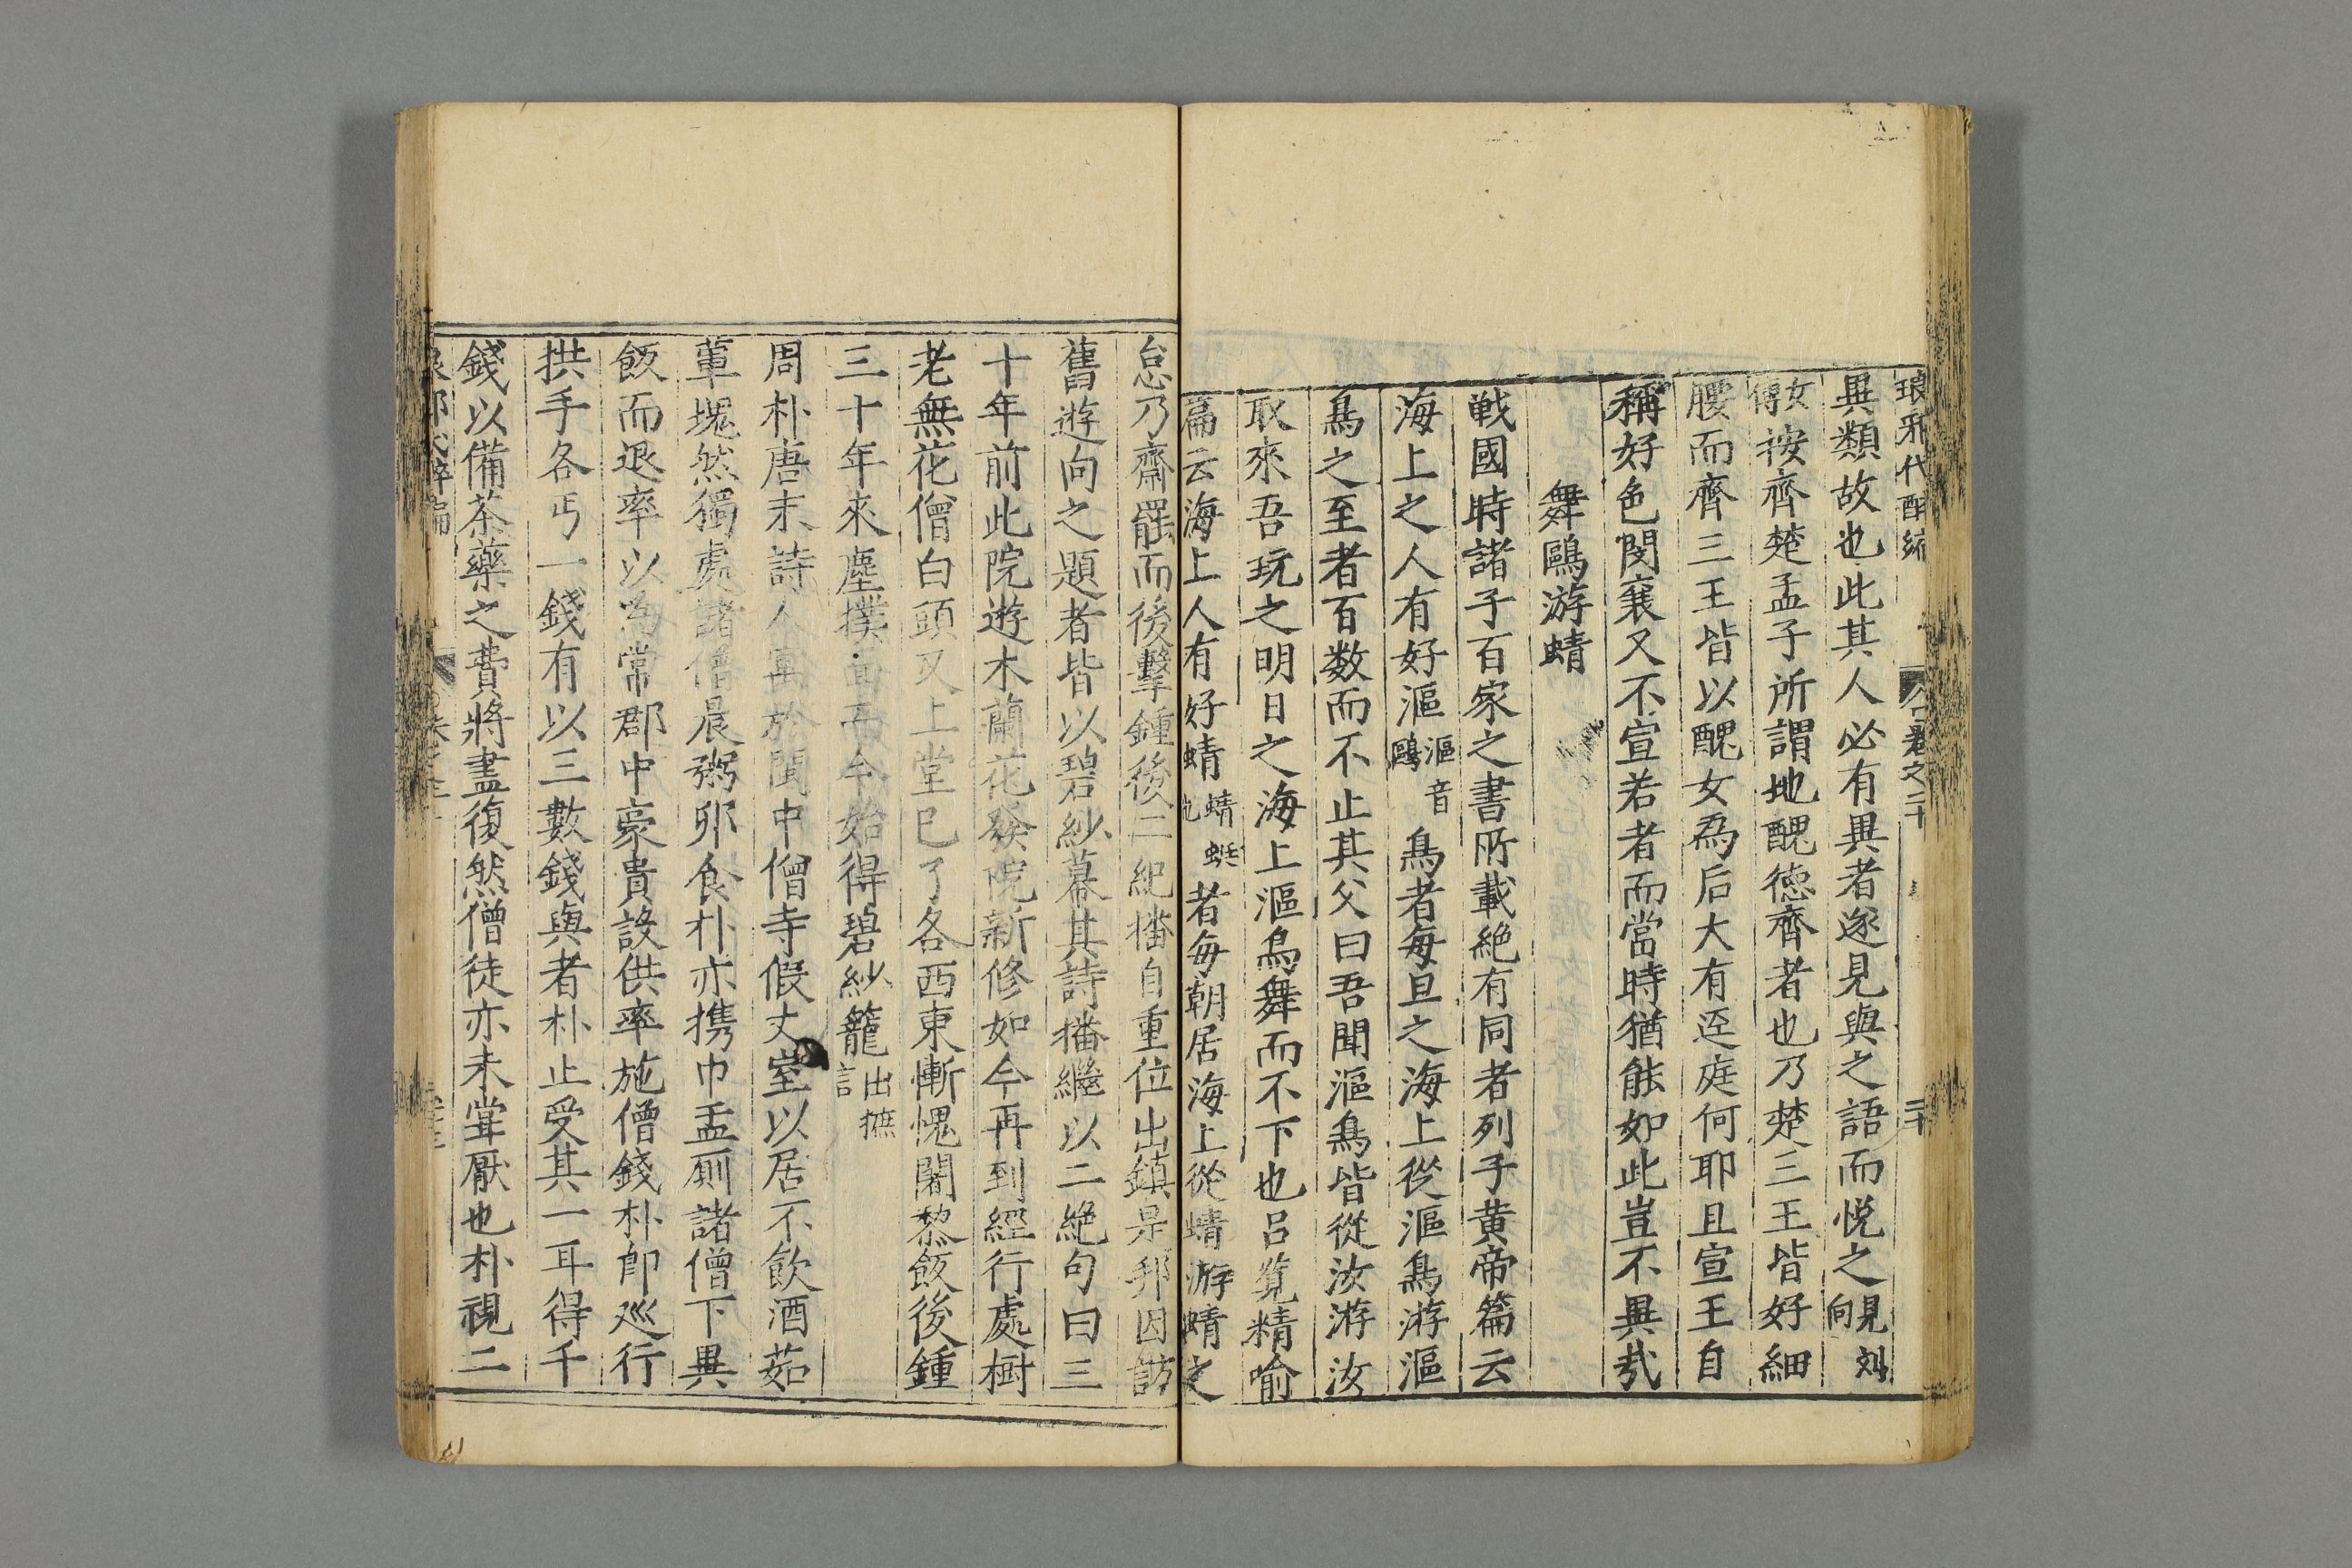 琅邪代醉編 卷之二十 二十
異類故也此其人必有異者遂見與之語而悅之見劉向
女傳按齊楚孟子所謂地醜徳齊者也乃楚三王皆好細
腰而齊三王皆以醜女為后大有逕庭何耶且宣王自
稱好色閔襄又不宣若者而當時猶能如此豈不異㢤
舞鷗游蜻
戦國時諸子百家之書所載絶有同者列子黄帝篇云
海上之人有好漚漚音鷗鳥者每旦之海上從漚鳥游漚
鳥之至者百数而不止其父曰吾聞漚鳥皆從汝游汝
取來吾玩之明日之海上漚鳥舞而不下也吕覧精喻
篇云海上人有好蜻蜻蜓者每朝居海上從蜻游蜻之
怠乃齋罷而後擊鍾後二紀播自重位出鎮是邦因訪
舊遊向之題者皆以碧紗幕其詩播繼以二絶句曰三
十年前此院遊木蘭花發院新修如今再到經行處樹
老無花僧白頭又上堂已了各西東慚愧闍黎飯後鍾
三十年來塵撲面而今始得碧紗籠出摭言
周朴唐末詩人寓於閩中僧寺假丈室以居不飲酒茹
葷塊然獨處諸僧晨粥卯食朴亦携巾盂厠諸僧下異
飯而退率以為常郡中豪貴設供率施僧錢朴卽巡行
拱手各丐一錢有以三數錢與者朴止受其一耳得千
錢以備茶藥之費將盡復然僧徒亦未甞厭也朴視二